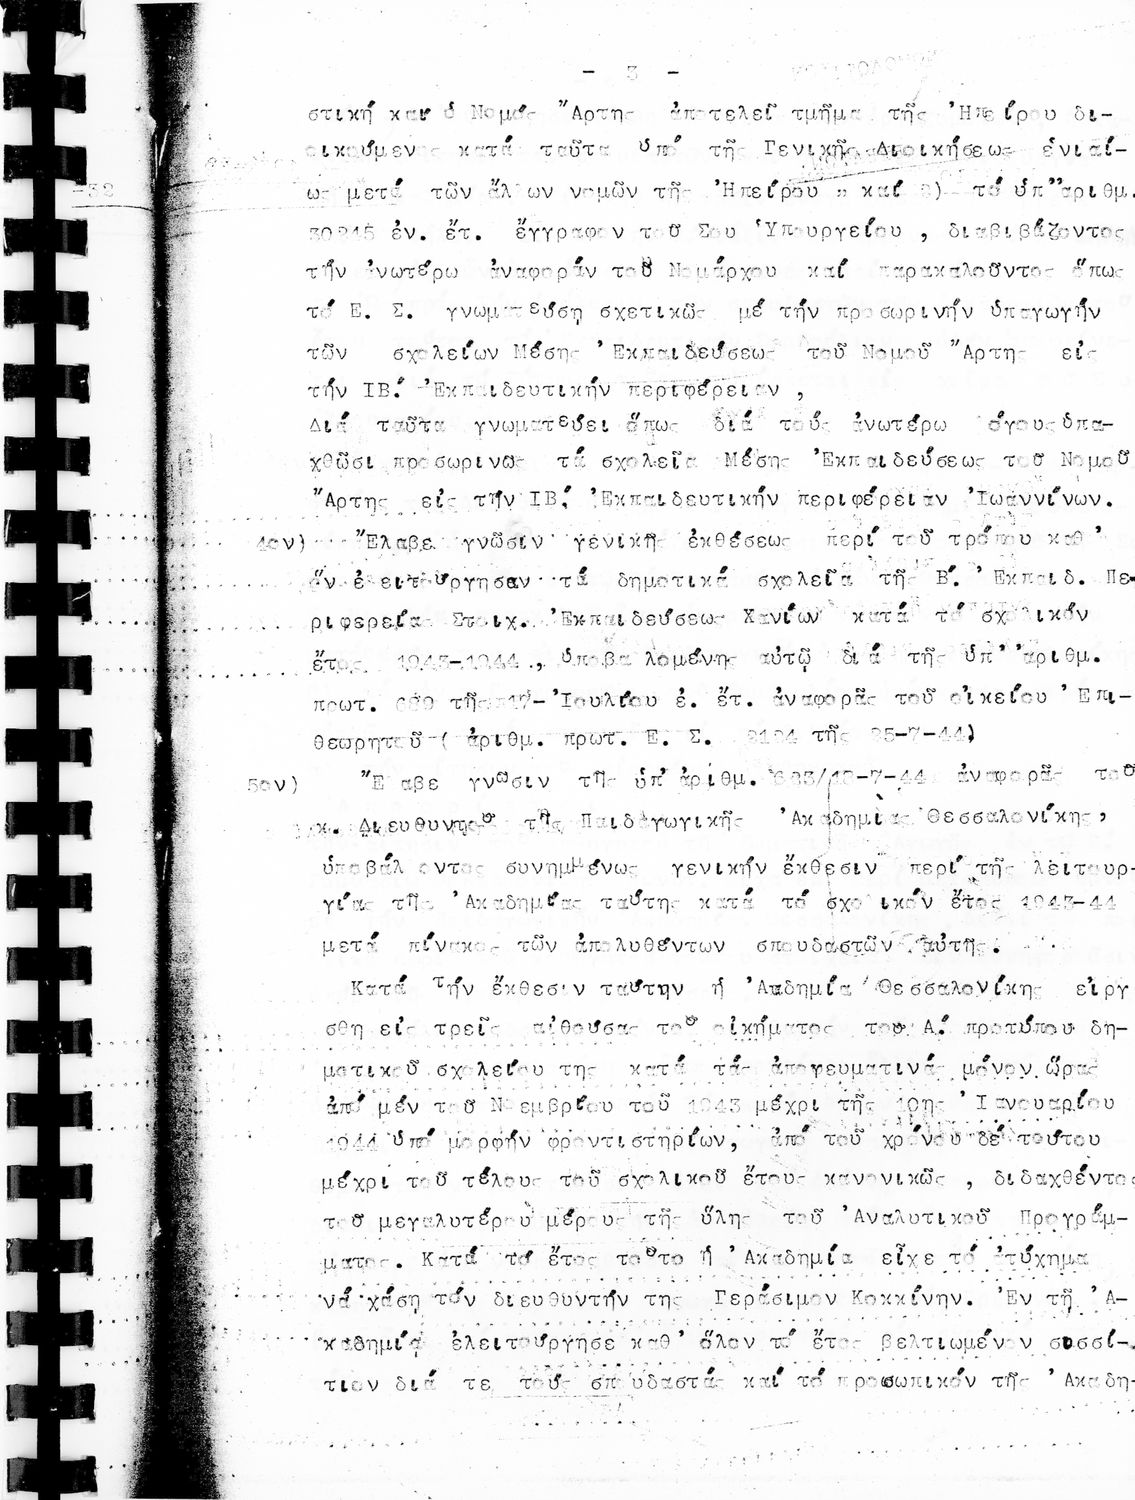 - 3 -
στική καί ὁ Νομός Ἄρτης ἀποτελεῖ τμῆμα τῆς Ἠπείρου δι-
οικούμενος κατά ταῦτα ὑπό τῆς Γενικῆς Διοικήσεως ἑνιαί-
ως μετά τῶν ἄλλων νομῶν τῆς Ἠπείρου " καί 8) τό ὑπ'ἀριθμ.
ἐν. ἔτ. ἔγγραφον τοῦ Σου Ὑπουργείου , διαβιβάζοντος
τήν ἀνωτέρω ἀναφοράν τοῦ Νομάρχου καί παρακαλοῦντος ὅπως
τό Ε. Σ. γνωματεύσῃ σχετικῶς μέ τήν προσωρινήν ὑπαγωγήν
τῶν σχολείων Μέσης Ἐκπαιδεύσεως τοῦ Νομοῦ Ἄρτης εἰς
τήν ΙΒ. Ἐκπαιδευτικήν περιφέρειαν ,
Διά ταῦτα γνωματεύει ὅπως διά τούς ἀνωτέρω όγους ὑπα-
χθῶσι προσωρινῶς τά σχολεῖα Μέσης Ἐκπαιδεύσεως τοῦ Νομοῦ
Ἄρτης εἰς τήν ΙΒ. Ἐκπαιδευτικήν περιφέρειαν Ἰωαννίνων.
4ον) Ἔλαβε γνῶσιν γενικῆς ἐκθέσεως περί τοῦ τρόπου καθ'
ὅν ἐλειτούργησαν τά δημοτικά σχολεῖα τῆς Β. Ἐκπαιδ. Πε-
ριφερείας Στοιχ. Ἐκπαιδεύσεως Χανίων κατά τό σχολικόν
ἔτος 1943-1944 , ὑποβαλομένης αὐτῷ διά τῆς ὑπ'ἀριθμ.
πρωτ. 689 τῆς 17-Ἰουλίου ἐ. ἔτ. ἀναφορᾶς τοῦ οἰκείου Ἐπι-
θεωρητοῦ ( ἀριθμ. πρωτ. Ε. Σ. 2124 τῆς 25-7-44)
5ον) Ἔλαβε γνῶσιν τῆς ὑπ'ἀριθμ. ἀναφορᾶς τοῦ
κ. Διευθυντοῦ τῆς Παιδαγωγικῆς Ἀκαδημίας Θεσσαλονίκης,
ὑποβάλοντος συνημμένως γενικήν ἔκθεσιν περί τῆς λειτουρ-
γίας τῆς Ἀκαδημίας ταύτης κατά τό σχολικόν ἔτος 1943-44
μετά πίνακος τῶν ἀπολυθέντων σπουδαστῶν αὐτῆς.
Κατά τήν ἔκθεσιν ταύτην ἡ Ἀαδημία Θεσσαλονίκης εἰργ
σθη εἰς τρεῖς αἰθούσας τοῦ οἰκήματος του Α. προτύπου δη-
μοτικοῦ σχολείου της κατά τάς ἀπογευματινάς μόνον ὥρας
ἀπό μέν τοῦ Νοεμβρίου τοῦ 1943 μέχρι τῆς 10ης Ἰανουαρίου
1944 ὑπό μορφήν φροντιστηρίων, ἀπό τοῦ χρόνου δέ τούτου
μέχρι τοῦ τέλους τοῦ σχολικοῦ ἔτους κανονικῶς , διδαχθέντος
τοῦ μεγαλυτέρου μέρους τῆς ὕλης τοῦ Ἀναλυτικοῦ Προγράμ-
ματος. Κατά τό ἔτος τοῦτο ἡ Ἀκαδημία εἶχε τό ἀτύχημα
νά χάση τόν διευθυντήν της Γεράσιμον Κοκκίνην. Ἐν τῇ Ἀ-
καδημίᾳ ἐλειτούργησε καθ' ὅλον τό ἔτος βελτιωμένον συσσί-
τιον διά τε τούς σπουδαστάς καί τό προσωπικόν τῆς Ἀκαδη-